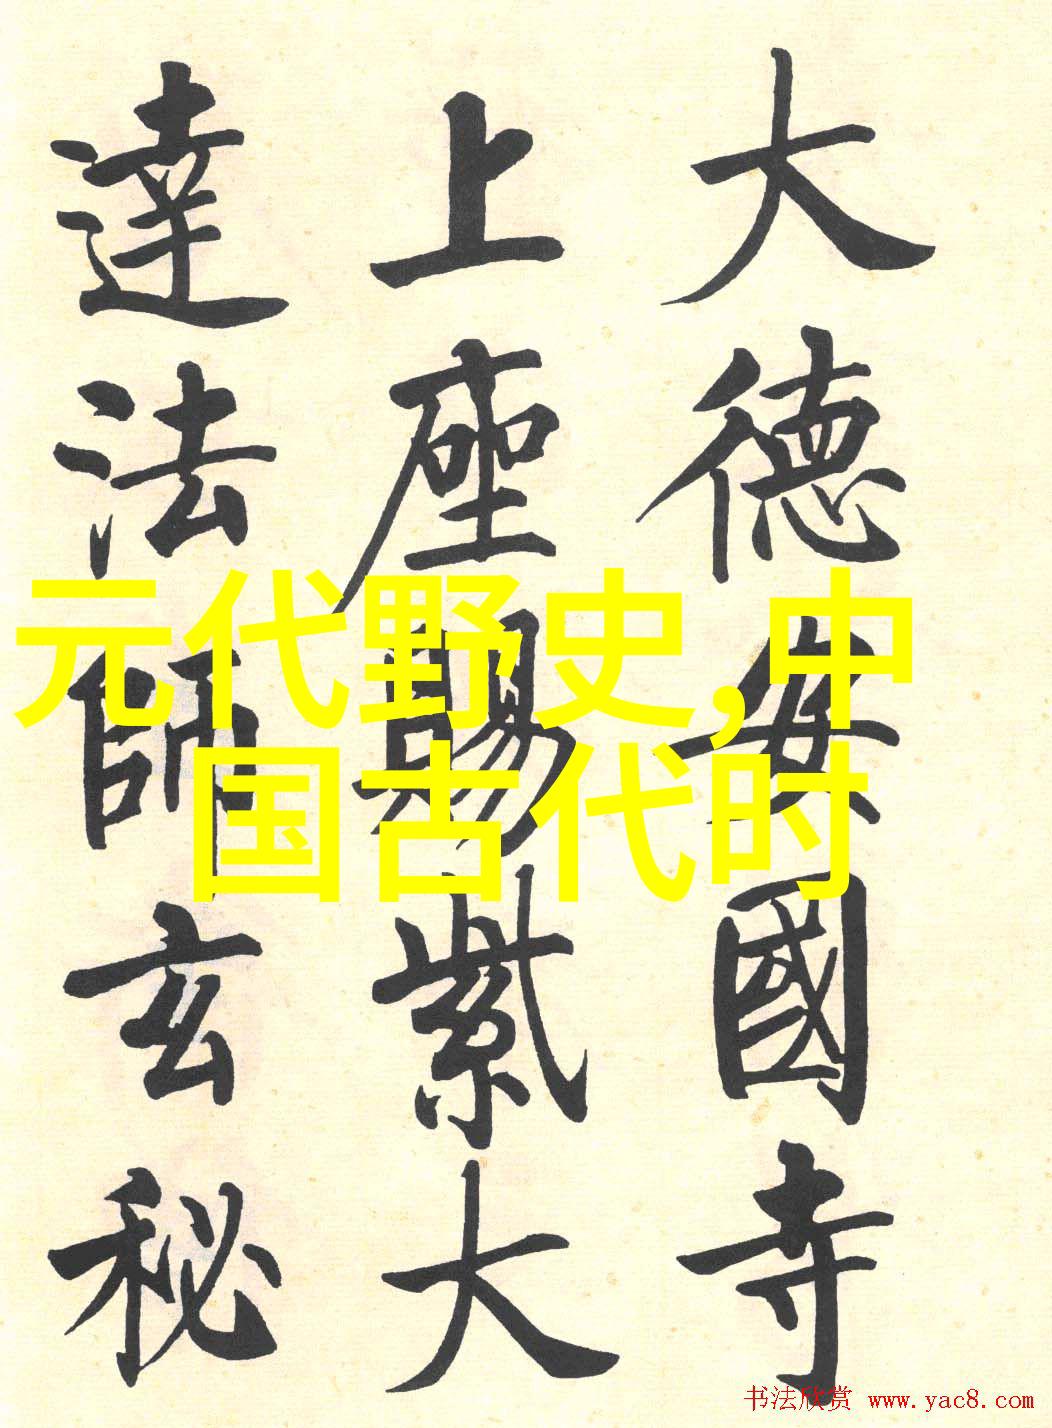 大德安國寺
上座賜紫大
達法師玄秘
元代野史,中
国古代时
书法欣赏 www.yac8.com